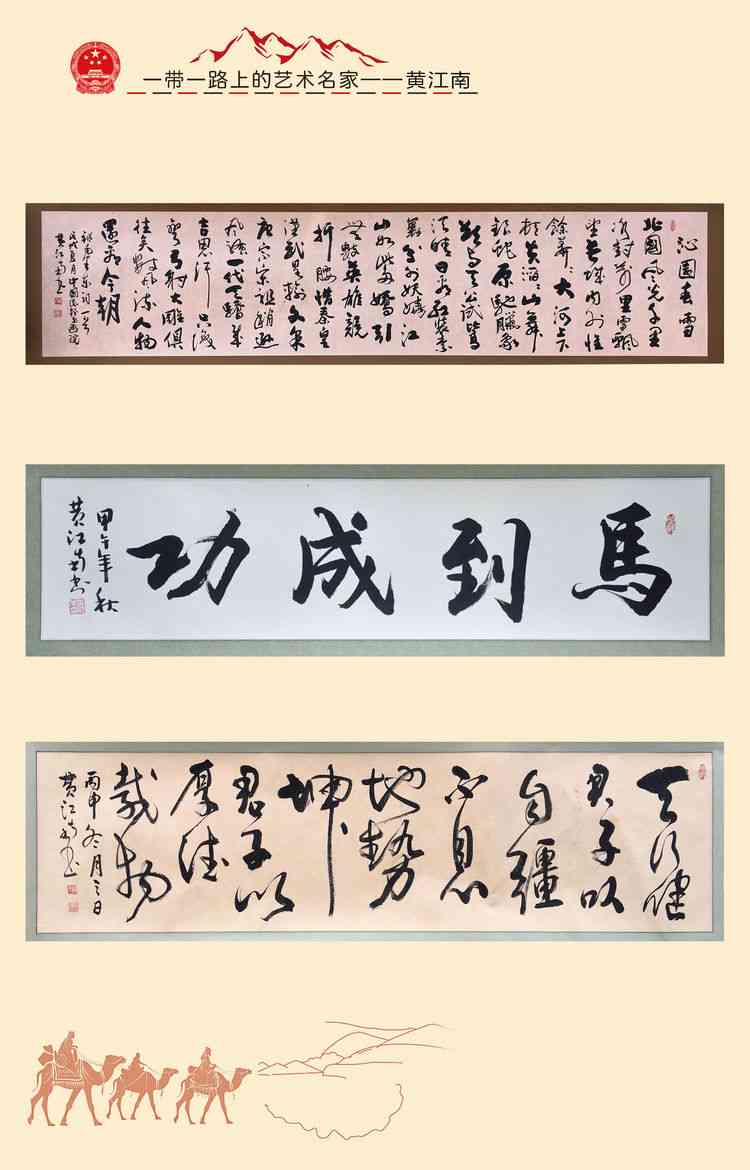 一带一路上的艺术名家——黄江南
沁園春雪
北國風光千里
冰封萬里雪飄
望長城内外惟
餘莽莽大河上下
山舞
銀蛇原馳臘象
欲與天公試
須晴日看紅裝素
裹分外妖嬈江
山如此多嬌引
無數英雄競
折腰惜秦皇
漢武略輸文采
唐宗宋祖稍遜
風騷一代天驕
吉思汗只識
彎弓射大雕俱
往矣數風流人物
還看今朝
毛泽东词一首
黄江南书
馬到成功
甲午年秋
黄江南书
天行健
君子以
自疆
不息
地勢
坤
君子以
厚德
載物
丙申冬月三日
黄江南书